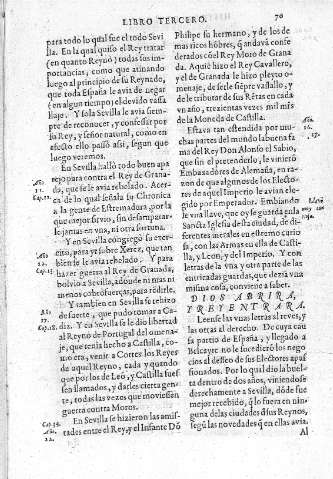 LIBRO TERCERO.
70
para todo lo qual fue el todo Sevi
lla. En la qual quiso el Rey tratar
(en quanto Reyno) todas sus im-
portancias, como que atinando
luego al principio de su Reynado,
que toda España le avia de negar
(en algun tiempo) el devido vassa
llaje. Y sola Sevilla le avia siem-
pre de reconocer, y confessar por
su Rey, y señor natural, como en
efecto ello passò assi, segun que
luego veremos.
En Sevilla hallò todo buen apa
rejo para contra el Rey de Grana-
da, que se le avia rebelado. Acer-
ca de lo qual señala su Chronica
a la gente de Estremadura, por la
que mejor sirvio, sin desamparar
le jamas en una, ni otra fortuna.
Y en Sevilla congregò su exer-
cito, para yr sobre Xerez, que tam
bien se le avia rebelado. Y para
hazer guerra al Rey de Granada,
bolvio a Sevilla, adonde ni mas ni
menos cobrò fuerças, para rédirle.
Y tambien en Sevilla se rehizo
de suerte, que pudo tomar a Ca-
diz. Y en Sevilla se le dio libertad
al Reyno de Portugal del omena-
je, que tenia hecho a Castilla, co-
mo era, venir a Cortes los Reyes
de aquel Reyno, cada y quando
que por los de Leō, y Castilla fues
sen llamados, y darles cierta gen-
te, todas las vezes que moviessen
guerra contra Moros.
En Sevilla se hizieron las amis-
tades entre el Rey, y el Infante Dō
Año.
11.
Cap. 11.
Cap. 18.
Cap. 19.
Año.
22.
Philipe su hermano, y de los de
mas ricos hōbres, q̃ andavā confe
derados cō el Rey Moro de Grana
da. Aqui hizo el Rey Cavallero,
y el de Granada le hizo pleyto o-
menaje, de serle siēpre vassallo, y
de le tributar de sus Rētas en cada
vn año, trezientas vezes mil mrs
de la Moneda de Castilla.
Estava tan estendida por mu-
chas partes del mundo la buena fa
ma del Rey Don Alonso el Sabio,
que sin el pretenderlo, le vinierō
Embaxadores de Alemaña, en ra-
zon de que algunos de los Electo-
res de aquel Imperio le avian ele-
gido por Emperador. Embiandro
le vna llave, que oy se guarda en la
Sancta Iglesia desta ciudad, de di-
ferentes metales en estremo curio
sa, con las Armas en ella de Casti-
lla, y Leon, y del Imperio. Y con
letras de la vna y otra parte de las
entricadas guardas, que dezia vna
misma cosa, conviene a saber.
DIOS ABRIRA,
Y REY ENTRARA.
Leense las vnas letras al reves, y
las otras al derecho. De cuya cau
sa partio de España, y llegado a
Belcayre no le sucediero los nego
cios al desseo de sus Electores apas
sionados. Por lo qual dio la buel-
ta dentro de dos años, viniendose
derechamente a Sevilla, dōde fue
mejor recebido, q̃ lo fuera en nin
guna de las ciudades d̃ sus Reynos,
segū las novedades q̃ en ellas avia.
Al